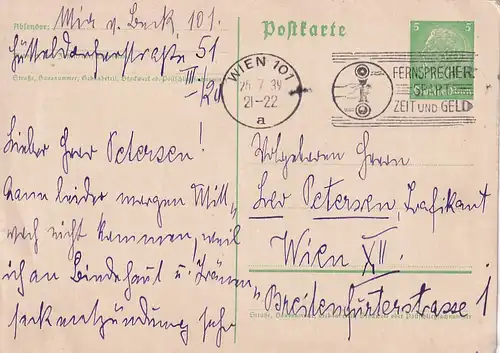 Absender: Mia v. Beck, 101.
Hütteldorferstraße 51
Straße, Hausnummer, Gebäudeteil, Stockwerk od. Postschließfachnummer
III
12a
Lieber Herr Petersen!
Kann leider morgen Mitt„
woch nicht kommen, weil
ich an Bindehaut u. Tränen„
sackentzündung sehr
Postkarte
WIEN 101
25 7 39
21-22
a
FERNSPRECHER
SPART
ZEIT UND GELD
5
5
Wolgeboren Herrn
Leo Petersen, Trafikant
Wien XII.
Breitenfurterstrasse 1
Straße, Hausnummer, Gebäudeteil, Stockwerk oder Postschließfachnummer